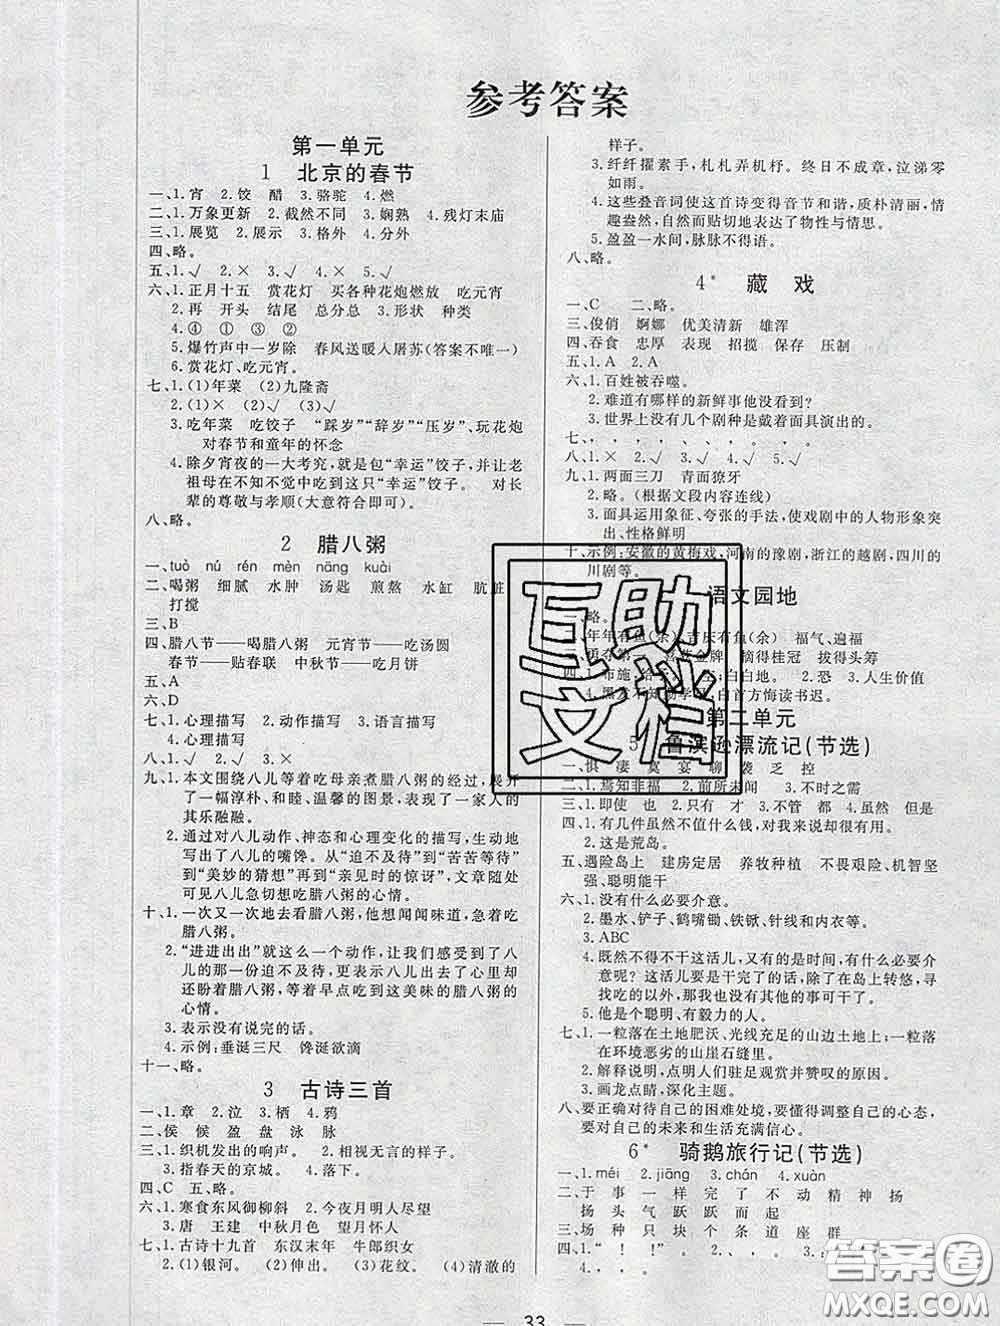 参考答案
第一单元
1 北京的春节
一、1.宵 2.饺 醋 3.骆驼 4.燃
二、1.万象更新 2.截然不同 3.娴熟 4.残灯末庙
三、1.展览 2.展示 3.格外 4.分外
四、略。
五、1.√ 2.× 3.√ 4.× 5.√
六、1.正月十五 赏花灯 买各种花炮燃放 吃元宵
2.再 开头 结尾 总分总 3.形状 种类
4.④ ① ③ ②
5.爆竹声中一岁除 春风送暖入屠苏(答案不唯一)
6.赏花灯、吃元宵。
七、1.(1)年菜 (2)九隆斋
2.(1)× (2)√ (3)√
3.吃年菜 吃饺子 “踩岁”“辞岁”“压岁”、玩花炮
对春节和童年的怀念
4.除夕宵夜的一大考究,就是包“幸运”饺子,并让老
祖母在不知不觉中吃到这只“幸运”饺子。 对长
辈的尊敬与孝顺(大意符合即可)
八、略。
2 腊八粥
一、tuò nú rén mèn nāng kuài
二、喝粥 细腻 水肿 汤匙 煎熬 水缸 肮脏
打搅
三、B
四、腊八节——喝腊八粥 元宵节——吃汤圆
春节——贴春联 中秋节——吃月饼
五、A
六、D
七、1.心理描写 2.动作描写 3.语言描写
4.心理描写
八、1.√ 2.√ 3.×
九、1.本文围绕八儿等着吃母亲煮腊八粥的经过,展开
了一幅淳朴、和睦、温馨的图景,表现了一家人的
其乐融融。
2.通过对八儿动作、神态和心理变化的描写,生动地
写出了八儿的嘴馋。从“迫不及待”到“苦苦等待”
到“美妙的猜想”再到“亲见时的惊讶”,文章随处
可见八儿急切想吃腊八粥的心情。
十、1.一次又一次地去看腊八粥,他想闻闻味道,急着吃
腊八粥。
2.“进进出出”就这么一个动作,让我们感受到了八
儿的那一份迫不及待,更表示出了八儿进了屋却
还盼着腊八粥,等着早点吃到这美味的腊八粥的
心情。
3.表示没有说完的话。
4.示例:垂涎三尺 馋涎欲滴
十一、略。
3 古诗三首
一、1.章 2.泣 3.栖 4.鸦
二、侯 候 盈 盘 泳 脉
三、1.织机发出的响声。 2.相视无言的样子。
3.指春天的京城。 4.落下。
四、C 五、略。
六、1.寒食东风御柳斜 2.今夜月明人尽望
3.唐 王建 中秋月色 望月怀人
七、1.古诗十九首 东汉末年 牛郎织女
2.(1)银河。 (2)伸出。 (3)花纹。 (4)清澈的
样子。
3.纤纤擢素手,札札弄机杼。终日不成章,泣涕零
如雨。
4.这些叠音词使这首诗变得音节和谐,质朴清丽,情
趣盎然,自然而贴切地表达了物性与情思。
5.盈盈一水间,脉脉不得语。
八、略。
4* 藏戏
一、C 二、略。
三、俊俏 婀娜 优美清新 雄浑
四、吞食 忠厚 表现 招揽 保存 压制
五、1.A 2.A
六、1.百姓被吞噬。
2.难道有哪样的新鲜事他没看到?
3.世界上没有几个剧种是戴着面具演出的。
七、、 , 、 、 、 , , 。
八、1.× 2.√ 3.√ 4.× 5.√
九、1.两面三刀 青面獠牙
2.略。(根据文段内容连线)
3.面具运用象征、夸张的手法,使戏剧中的人物形象突
出、性格鲜明
十、示例:安徽的黄梅戏,河南的豫剧,浙江的越剧,四川的
川剧等。
语文园地
略。
年年有鱼(余) 吉庆有鱼(余) 福气、遍福
勇夺第一 金牌 摘得桂冠 拔得头筹
四、1.布施; 白白地。 2.恐 3.人生价值
4.黑发不知勤学早,白首方悔读书迟。
第二单元
5 鲁滨逊漂流记(节选)
一、惧 凄 寞 宴 聊 袭 乏 控
二、1.焉知非福 2.前所未闻 3.不时之需
三、1.即使 也 2.只有 才 3.不管 都 4.虽然 但是
四、1.有几件虽然不值什么钱,对我来说用处却很大。
2.这是荒岛。
五、遇险岛上 建房定居 养牧种植 不畏艰险、机智坚
强、聪明能干
六、1.没有什么必要介意。
2.墨水、铲子、鹤嘴锄、铁锹、针线和内衣等。
3.ABC
4.既然不得不干这活儿,又有的是时间,有什么必要介
意呢? 这活儿要是干完了的话,除了在岛上转悠
寻找吃的以外,那我也没有其他的事可干了。
5.他是个聪明、有毅力的人。
七、1.一粒落在土地肥沃、光线充足的山边土地上;一粒落
在环境恶劣的山崖石缝里。
2.解释说明,点明人们驻足观赏并赞叹的原因。
3.画龙点睛,深化主题。
八、要正确对待自己的困难处境,要懂得调整自己的心态,
要对自己的未来和生活充满信心。
6* 骑鹅旅行记(节选)
一、1.méi 2.jiāng 3.chán 4.xuàn
二、于 事 一 样 完 了 不 动 精 神 扬
扬 头 气 跃 跃 而 起
三、场 种 只 块 个 条 道 座 群
互助
文档
答案圈
MXQE.COM
— 33 —